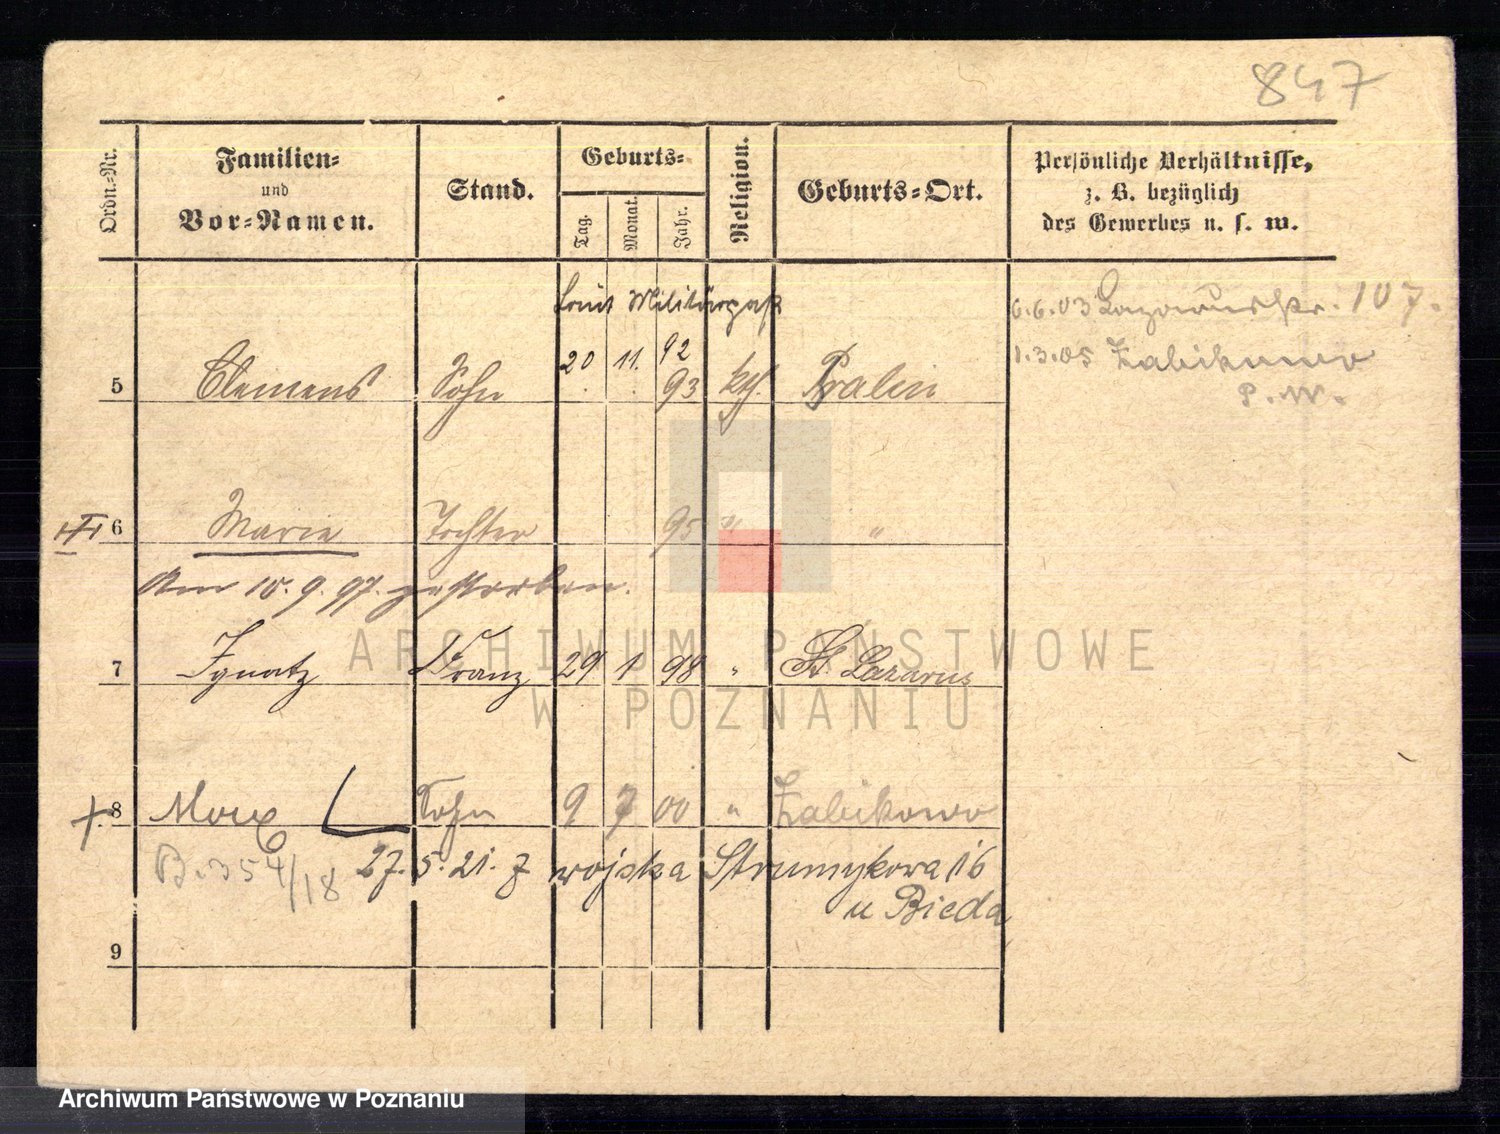 847
Ordn.-Nr.
Familien-
und
Vor-Namen.
Stand.
Geburts-
Tag.
Monat.
Jahr.
Religion.
Geburts-Ort.
Persönliche Verhältnisse,
z. B. bezüglich
des Gewerbes u. s. w.
laut Militärpaß
6.6.03 107.
1.3.05 Zabikowo
P. W.
20 11. 92
5 Clemens Sohn 93 kth. Pralin
6 Marie Tochter 95 " "
Am 10. 9. 97. gestorben.
7 Ignatz Franz 29 1 98 " St. Lazarus
8 Max Sohn 9 7 00 " Zabikowo
B. 354/18 27. 5. 21. z wojska Strumykowa 16
u Bieda
9
ARCHIWUM PAŃSTWOWE
W POZNANIU
Archiwum Państwowe w Poznaniu